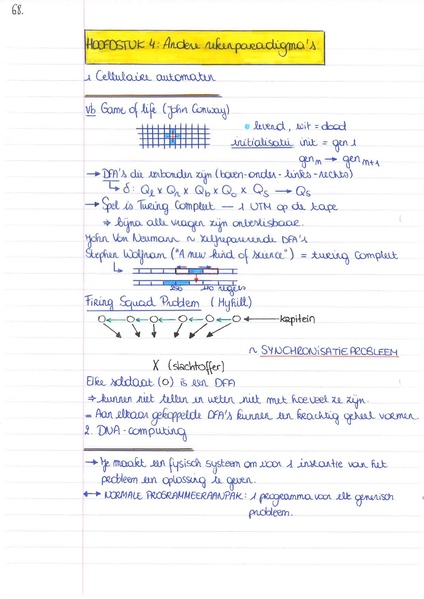 68.
HOOFDSTUK 4: Andere rekenparadigma's
1 Cellulaire automaten
vb Game of life (John Conway)
levend, wit = dood
initialisatie init = gen 1
gen m → gen m+1
→ DFA's die verbonden zijn (boven-onder-links-rechts)
↳ δ: Ql x Qr x Qb x Qo x QS → QS
→ Spel is Turing Compleet — 1 UTM op de tape
⇒ bijna alle vragen zijn onbeslisbaar.
John Von Neumann ~ zelfreparerende DFA's
Stephen Wolfram ("A new kind of science") = turing compleet
↳
256 110 regels
Firing Squad Problem (Myhill)
kapitein
X (slachtoffer)
~ SYNCHRONISATIEPROBLEEM
Elke soldaat (O) is een DFA
⇒ kunnen niet tellen en weten niet met hoeveel ze zijn.
- Aan elkaar gekoppelde DFA's kunnen een krachtig geheel vormen.
2. DNA-computing
→ Je maakt een fysisch systeem om voor 1 instantie van het
probleem een oplossing te geven.
↔ NORMALE PROGRAMMEERAANPAK: 1 programma voor elk generisch
probleem.